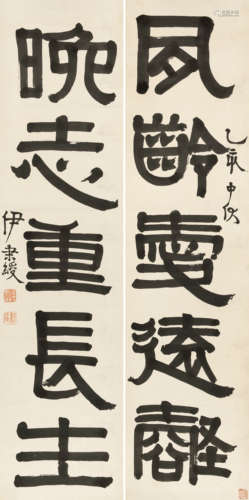 夙齡愛遠壑
乙亥中伏
晚志重長生
伊秉綬